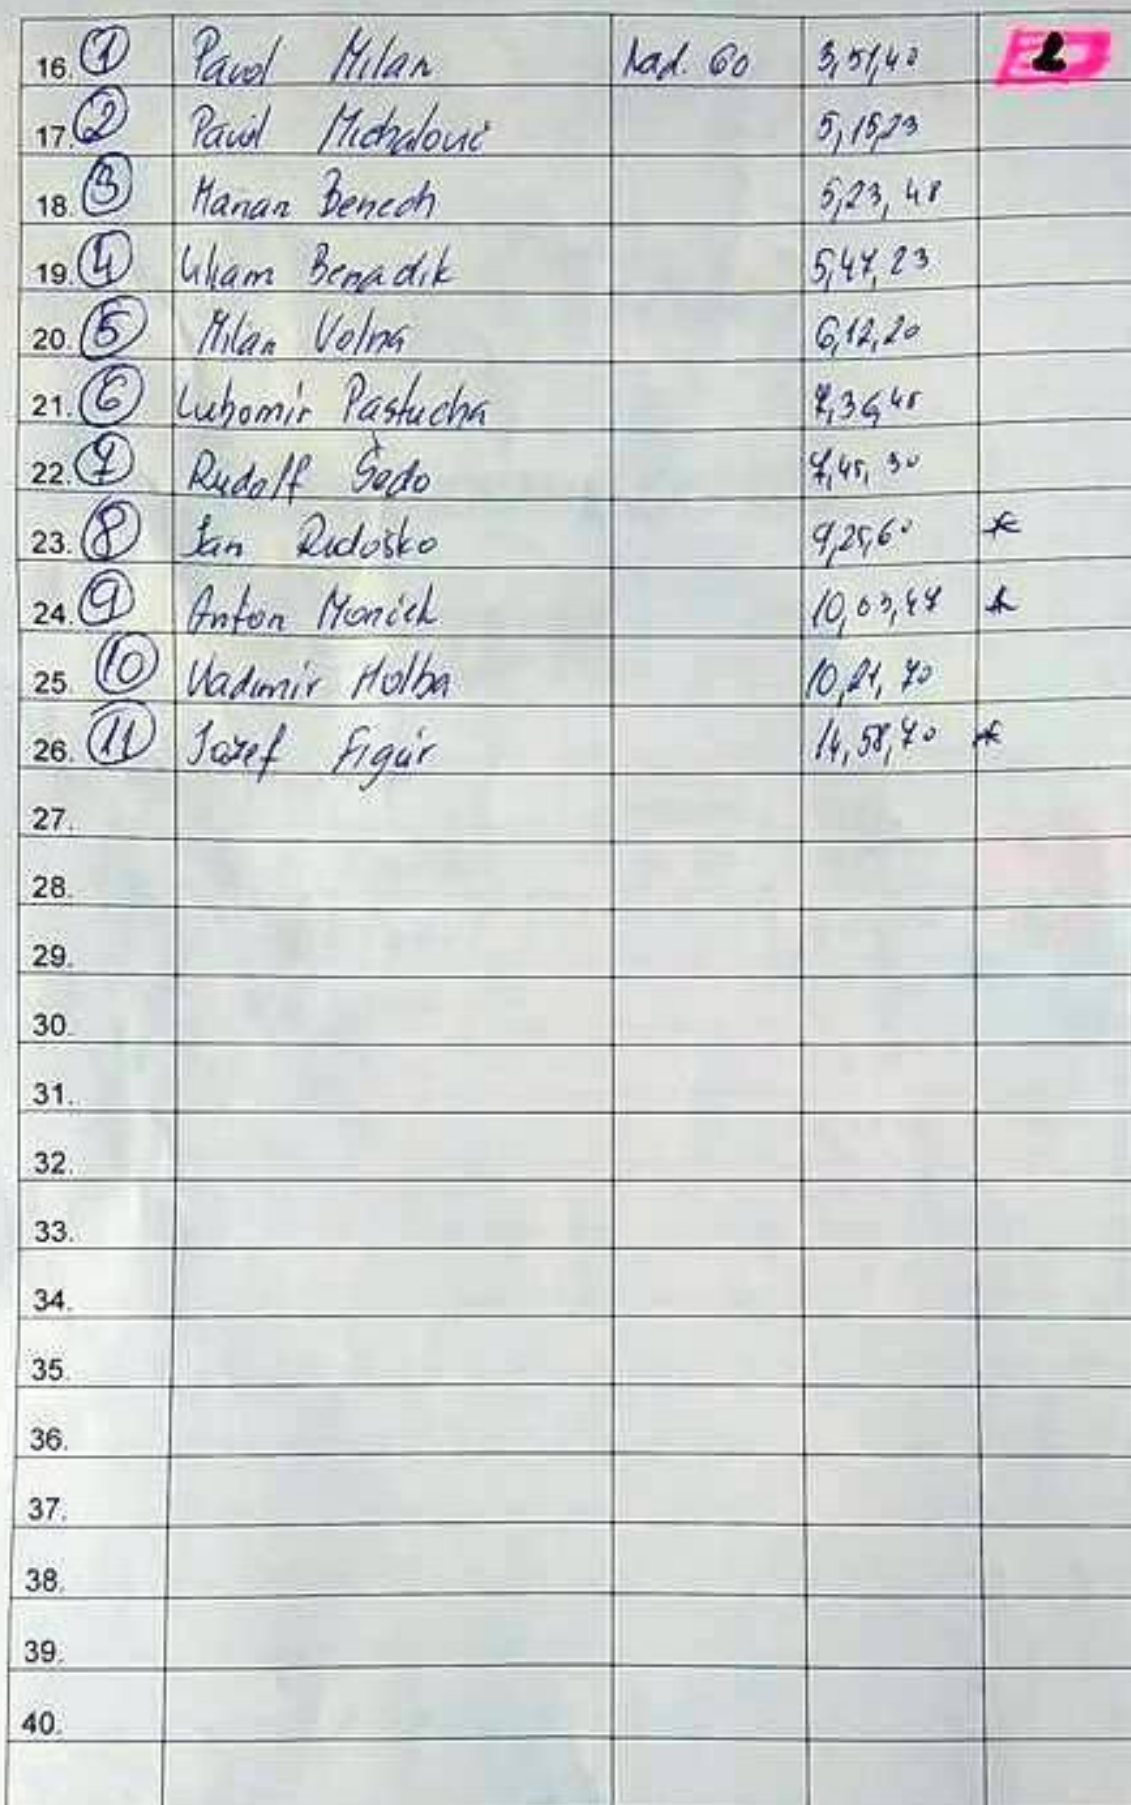 16. 1 Pavol Milan nad. 60 3,51,40 2
17. 2 Pavol Michalovič 5,15,23
18. 3 Marian Benech 5,23,48
19. 4 Benadik 5,47,23
20. 5 Milan Volna 6,12,20
21. 6 Lubomir Pastucha 7,36,45
22. 7 Rudolf Šodo 7,45,30
23. 8 Jan Rudoško 9,25,60 *
24. 9 Anton 10,03,47 *
25. 10 Vladimir Holba 10,21,70
26. 11 Jozef Figúr 14,58,70 *
27.
28.
29.
30.
31.
32.
33.
34.
35.
36.
37.
38.
39.
40.